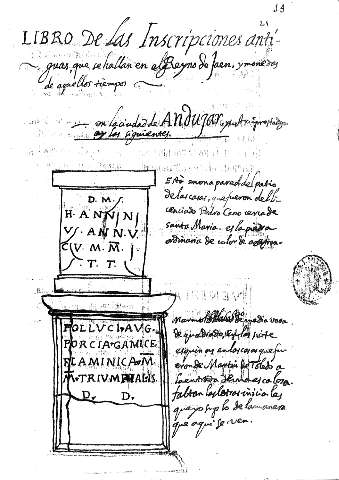 LIBRO De las Inscripciones anti-
guas que se hallan en el Reyno de Jaen, y monedas
de aquellos tiempos
en la ciudad de ANDUJAR
ay las siguientes.
D. M. S.
H. ANNIN
VS. ANNV.
CV. M. M.
T. T.
Esta en una pared del patio
de las casas, que fueron del li-
cenciado Pedro Cano cerca de
santa Maria. es la piedra
ordinaria de color de
POLLVCI. AVG.
PORCIA. GAMICE.
FLAMINICA. M
M. TRIVMPHALIS.
D. D.
de media vara
de quadrado,
esquina en las casas que fu
eron de Martin de Toledo a
la entrada de una escalera
faltan las letras iniciales
que yo suplo de la manera
que aqui se ven.